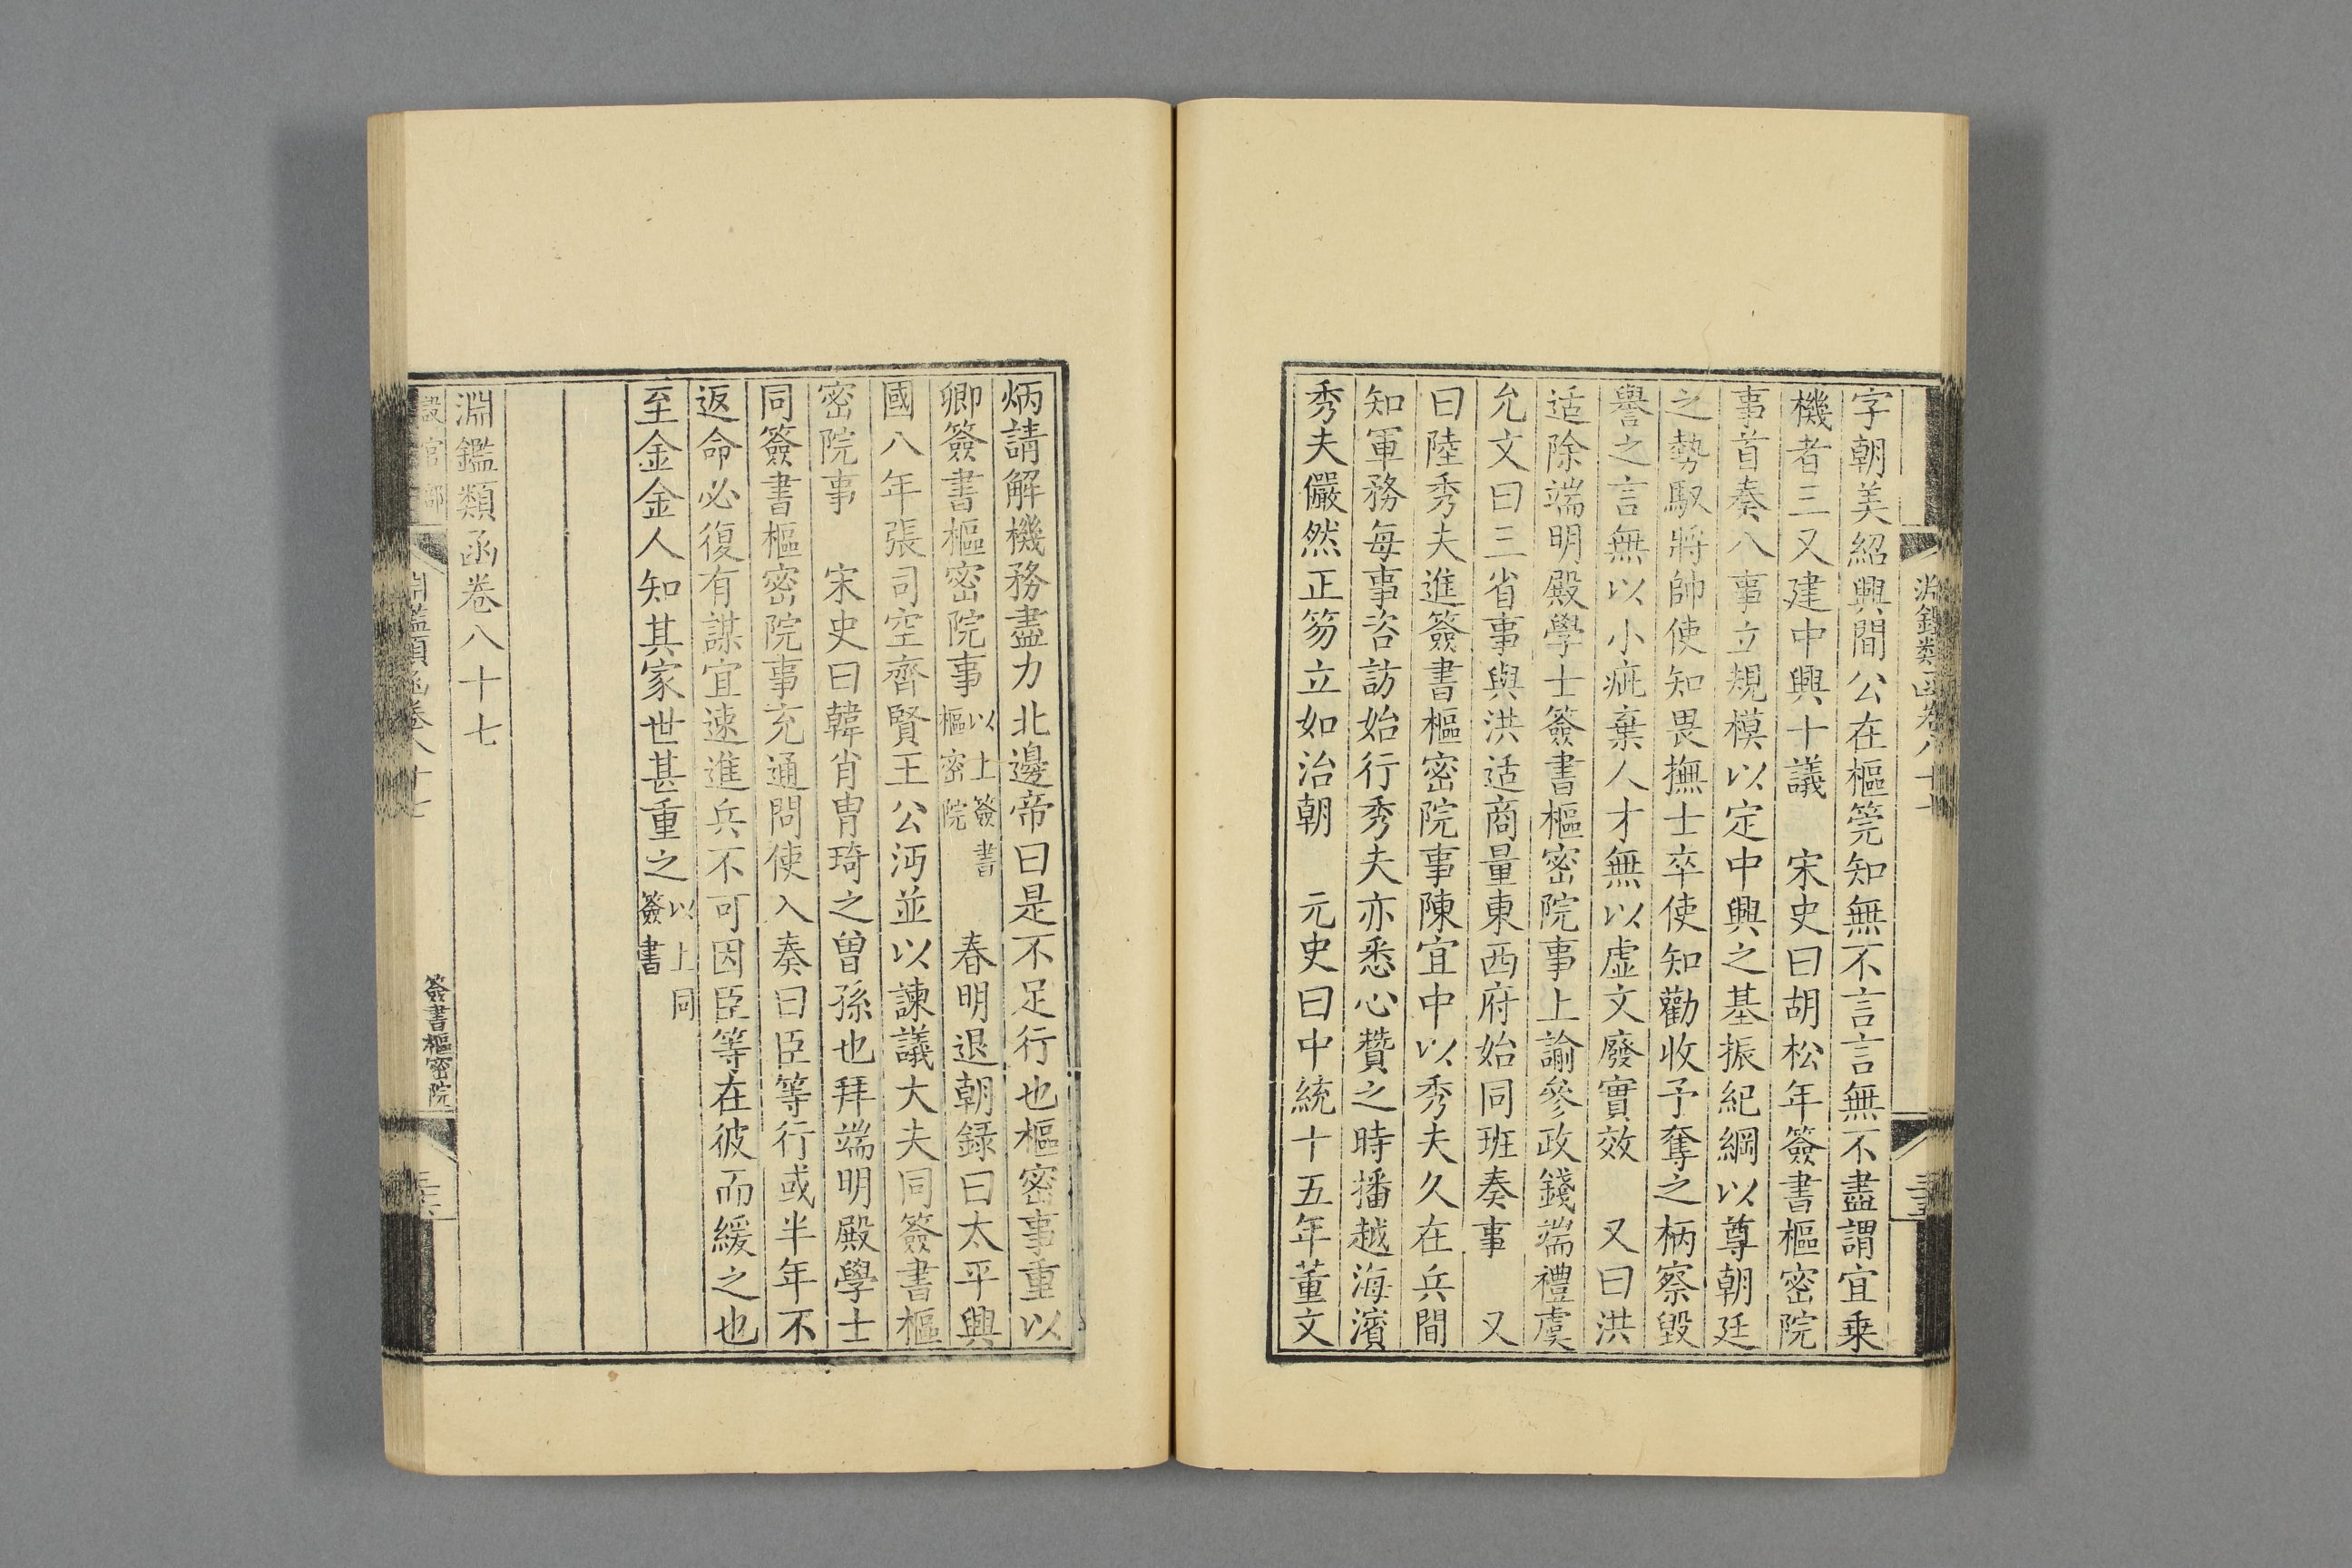 字朝美紹興間公在樞筦知無不言言無不盡謂宜乗
機者三又建中興十議　宋史曰胡松年簽書樞密院
事首奏八事立規模以定中興之基振紀綱以尊朝廷
之勢馭將帥使知畏撫士卒使知勸收予奪之柄察毀
譽之言無以小疵棄人才無以虛文廢實效　又曰洪
适除端明殿學士簽書樞密院事上諭參政錢端禮虞
允文曰三省事與洪适商量東西府始同班奏事　又
曰陸秀夫進簽書樞密院事陳宜中以秀夫久在兵間
知軍務每事咨訪始行秀夫亦悉心贊之時播越海濱
秀夫儼然正笏立如治朝　元史曰中統十五年董文
炳請解機務盡力北邊帝曰是不足行也樞密事重以
卿簽書樞密院事以上簽書樞密院　春明退朝録曰太平興
國八年張司空齊賢王公沔並以諫議大夫同簽書樞
密院事　宋史曰韓肖胄琦之曾孫也拜端明殿學士
同簽書樞密院事充通問使入奏曰臣等行或半年不
返命必復有謀宜速進兵不可因臣等在彼而緩之也
至金金人知其家世甚重之以上同簽書
淵鑑類函卷八十七
淵鑑類函卷八十七
簽書樞密院